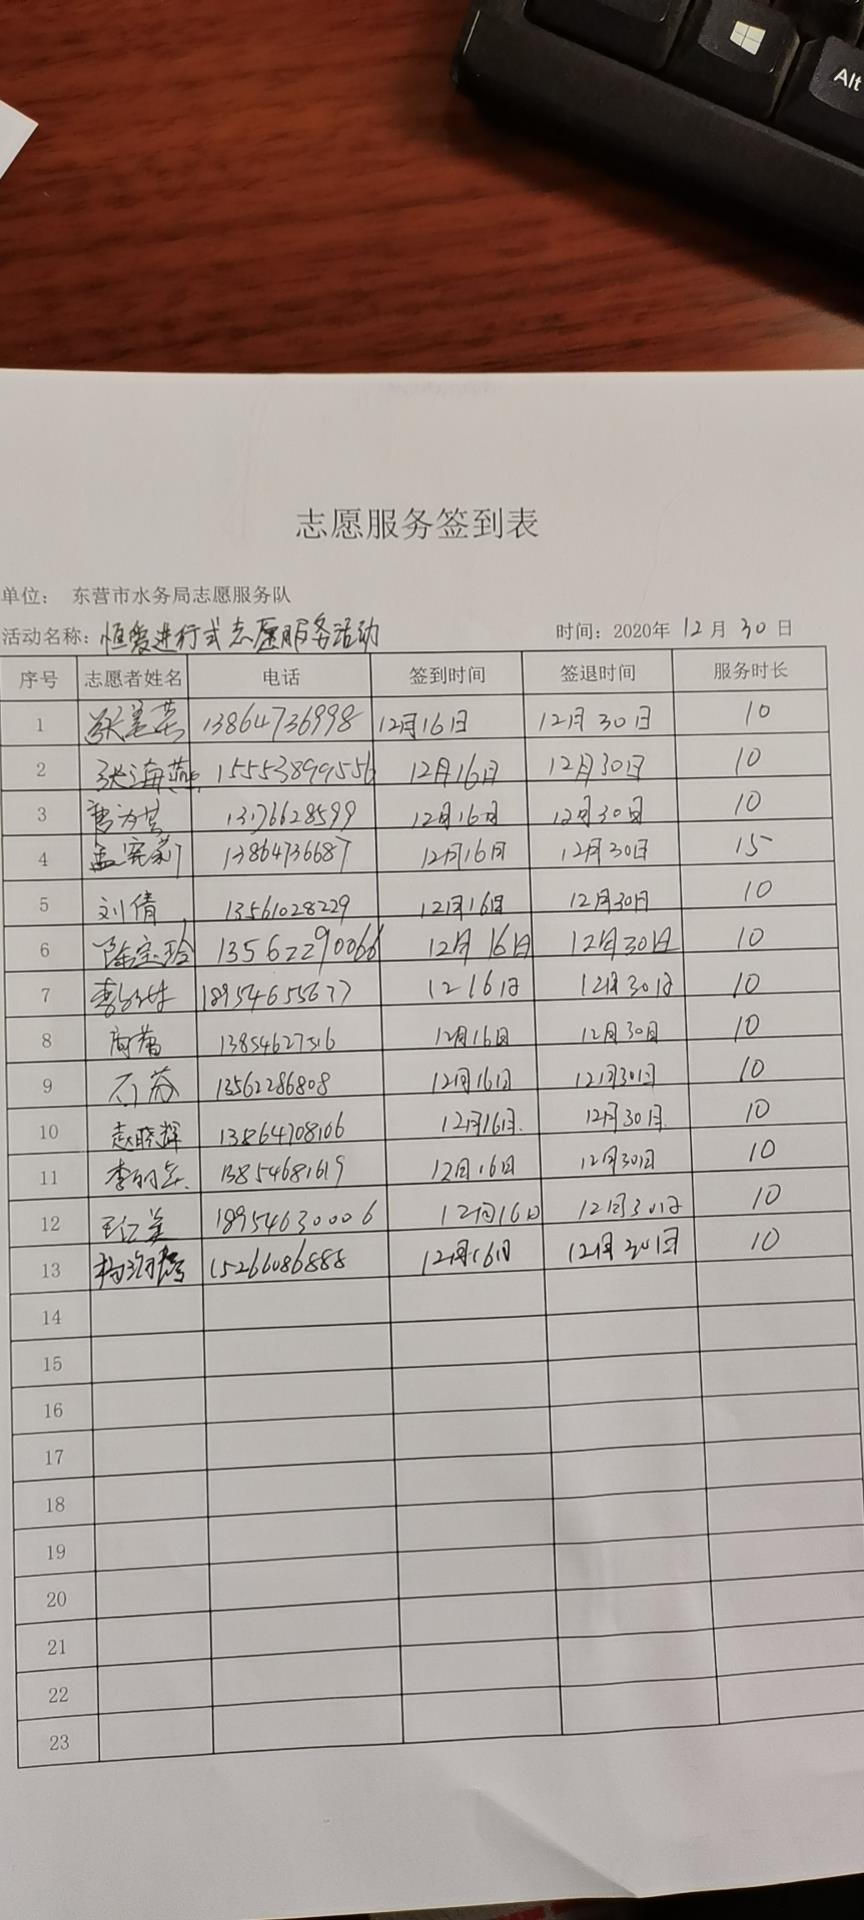 Alt
志愿服务签到表
单位： 东营市水务局志愿服务队
活动名称：恒爱进行式志愿服务活动 时间：2020年 12 月 30 日
序号 志愿者姓名 电话 签到时间 签退时间 服务时长
1 13864736998 12月16日 12月30日 10
2 张海燕 15553899556 12月16日 12月30日 10
3 13176628599 12月16日 12月30日 10
4 孟宪莉 13864736687 12月16日 12月30日 15
5 刘倩 13561028229 12月16日 12月30日 10
6 陈宝玲 13562290066 12月16日 12月30日 10
7 18954655677 12 16日 12月30日 10
8 12月16日 12月30日 10
9 13562286808 12月16日 12月30日 10
10 赵晓辉 13864708106 12月16日. 12月30日. 10
11 13854681619 12月16日 12月30日 10
12 18954630006 12月16日 12月30日 10
13 15266086888 12月16日 12月30日 10
14
15
16
17
18
19
20
21
22
23